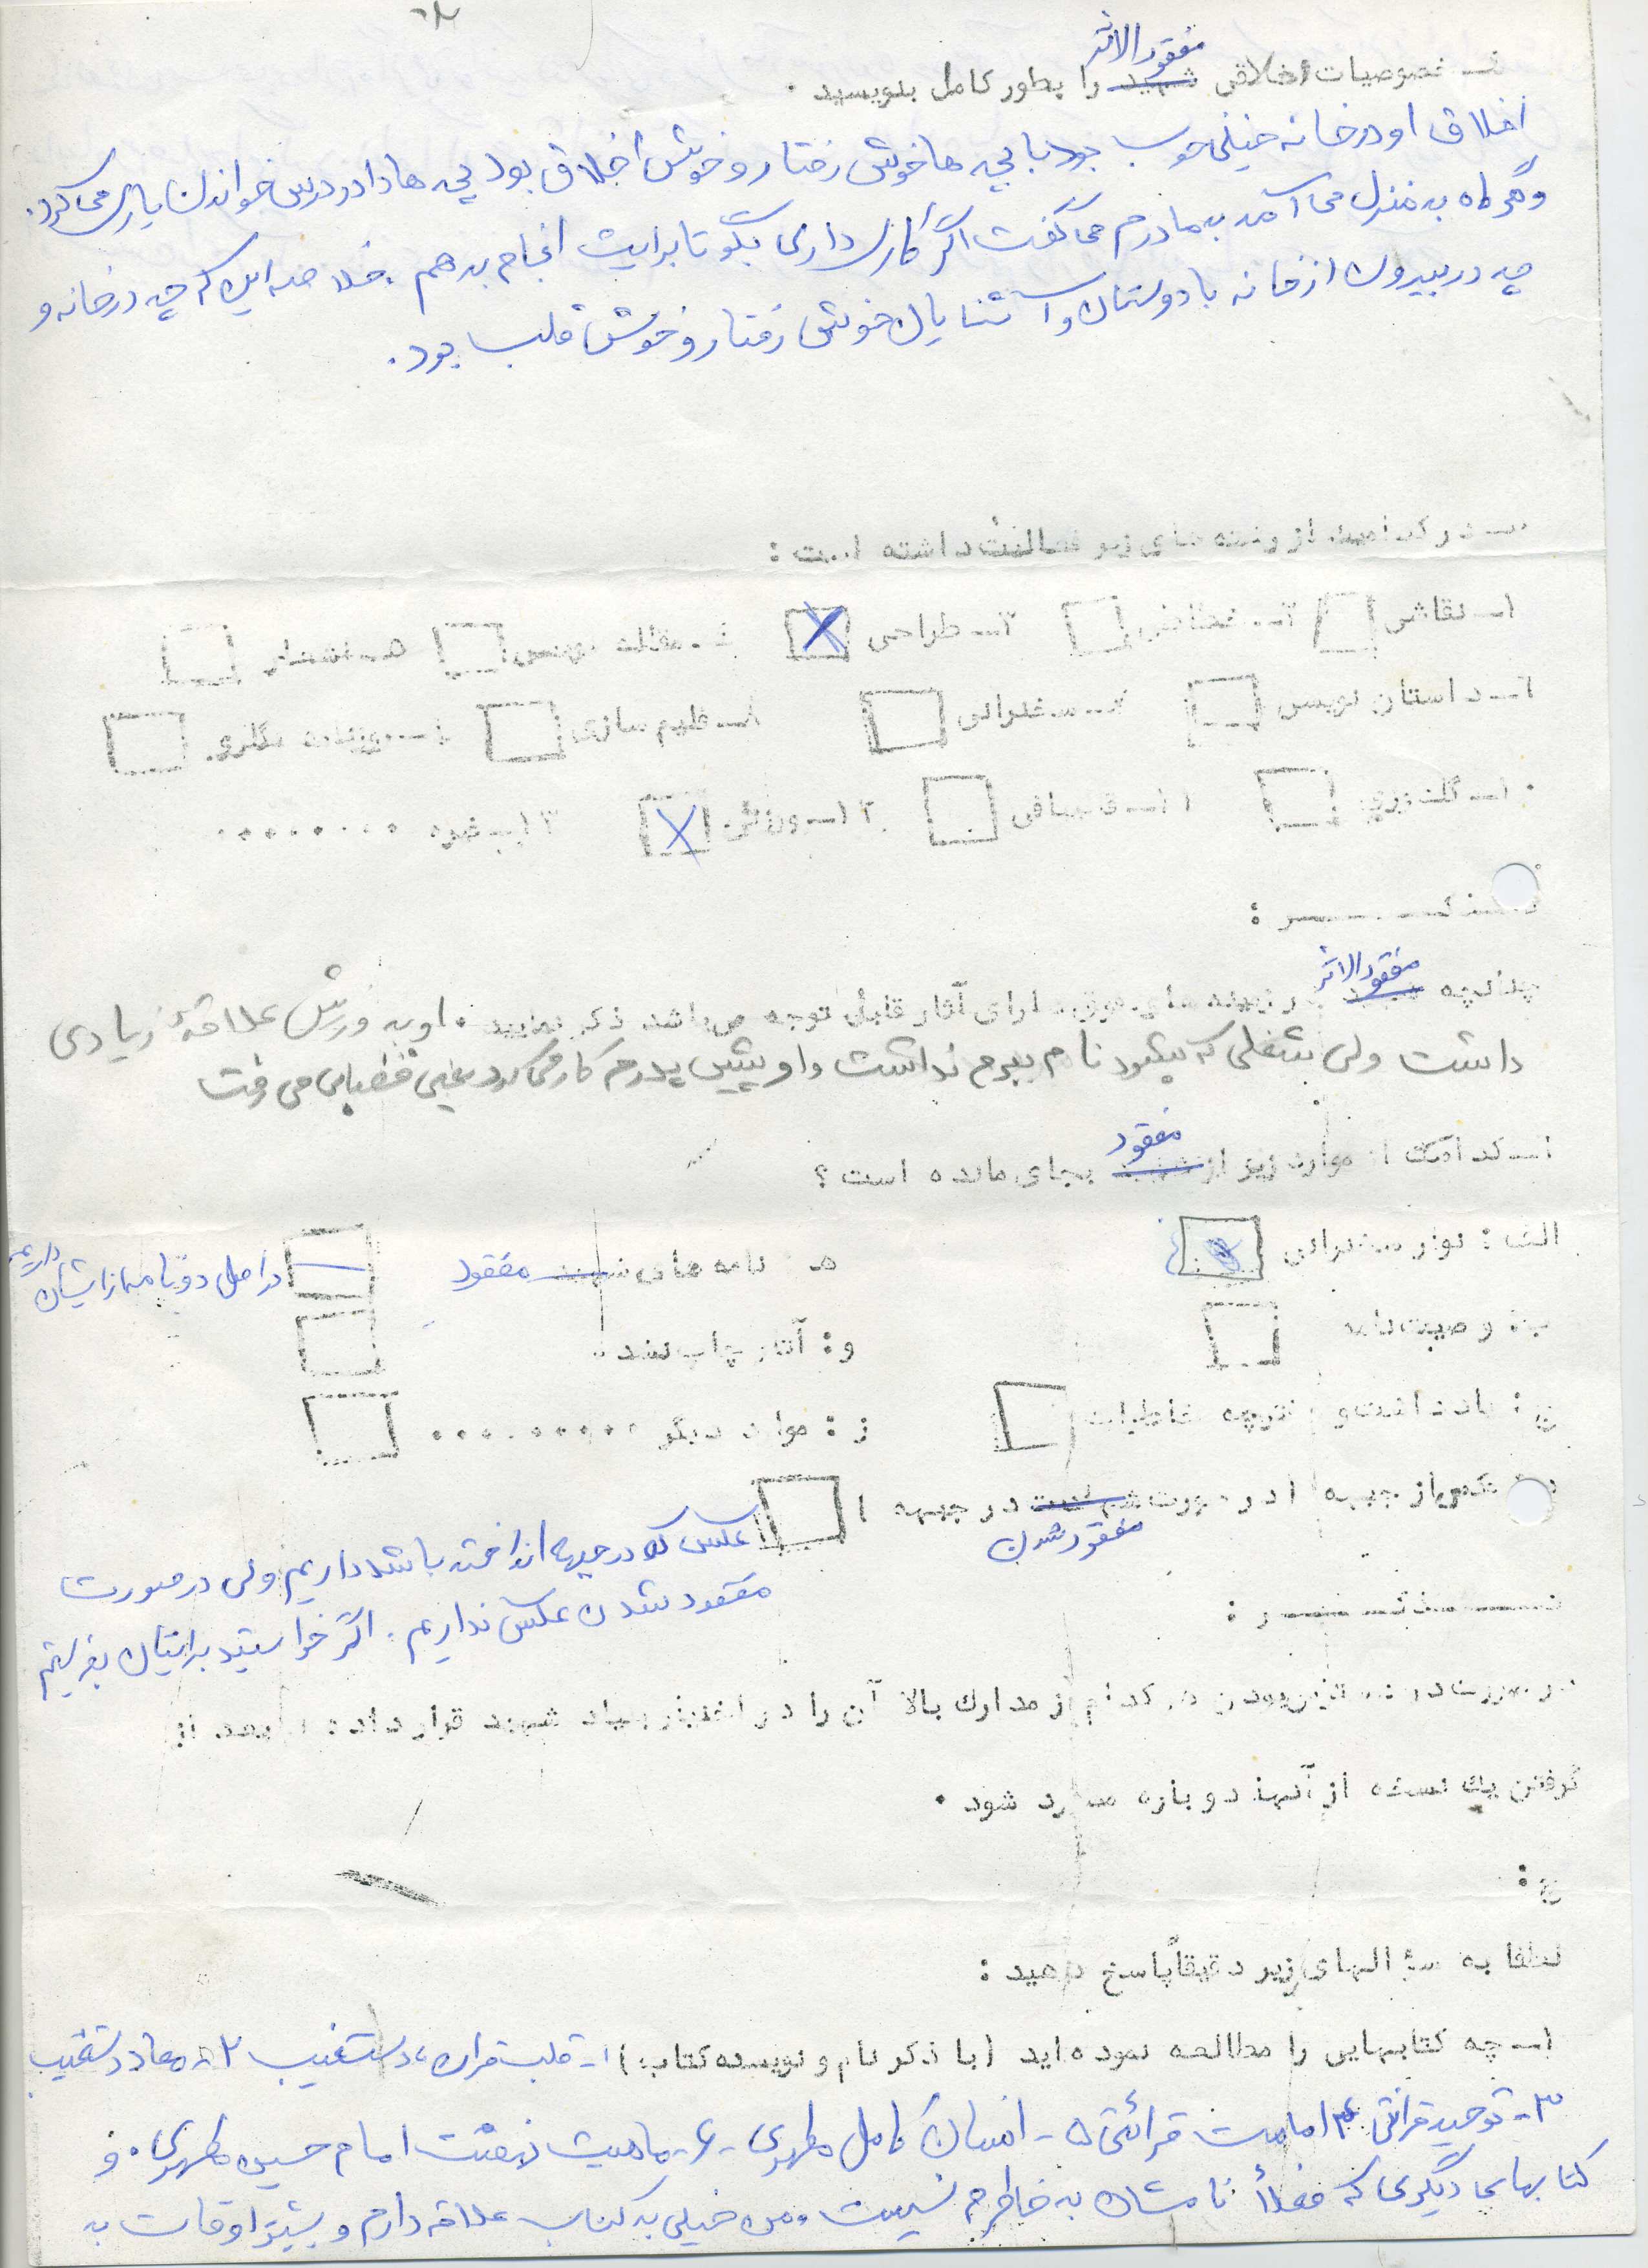 مفقودالاثر
خصوصیات اخلاقی شهید را بطور کامل بنویسید .
اخلاق او در خانه خیلی خوب بود با بچه ها خوش رفتار و خوش اخلاق بود بچه ها را در درس خواندن یاری می کرد.
و هرگاه به منزل می آمد به مادرم می گفت اگر کاری داری بگو تا برایت انجام بدهم . خلاصه این که چه در خانه و
چه در بیرون از خانه با دوستان و آشنایان خوش رفتار و خوش قلب بود.
در کدامیک از رشته های زیر فعالیت داشته است :
۱ــ نقاشی ۲ــ خطاطی ۳ــ طراحی ۴ــ مقاله نویسی ۵ــ اشعار
۶ــ داستان نویسی ۷ــ سخنرانی ۸ــ فیلم سازی ۹ــ روزنامه نگاری
۱۰ــ گلدوزی ۱۱ــ قالیبافی ۱۲ــ ورزش ۱۳ــ غیره ۰۰۰۰۰۰۰۰۰
تــذکــــــــر :
مفقودالاثر
چنانچه شهید در زمینه های فوق دارای آثار قابل توجه می باشد ذکر نمایید . او به ورزش علاقهٔ زیادی
داشت ولی شغلی که بشود نام ببرم نداشت و او پیش پدرم کار می کرد یعنی قصابی می رفت
مفقود
۱ــ کدامیک از موارد زیر از شهید بجای مانده است ؟
الف : نوار سخنرانی هـ نامه های شهید مفقود در اصل دو تا نامه از ایشان داریم
ب : وصیت نامه و : آثار چاپ شده
ج : یادداشت و دفترچه خاطرات ز : موارد دیگر ۰۰۰۰۰۰۰۰۰
د : عکس از جبهه ( در صورت شهادت در جبهه )
مفقود شدن
عکس که در جبهه انداخته باشد داریم ولی در صورت
مفقود شدن عکس نداریم . اگر خواستید برایتان بفرستیم
تــــــذکـــــــر :
در صورت در دسترس بودن هر کدام از مدارك بالا آن را در اختیار بنیاد شهید قرار داده تا بعد از
گرفتن یك نسخه از آنها دوباره مسترد شود .
ج :
لطفا به سؤالهای زیر دقیقاً پاسخ دهید :
۱ــ چه کتابهایی را مطالعه نموده اید (با ذکر نام و نویسنده کتاب) ۱- قلب قرآن، دستغیب ۲- معاد دستغیب
۳- توحید قرائتی ۴- امامت قرائتی ۵- انسان کامل مطهری - ۶- ماهیت نهضت امام حسین مطهری . و
کتابهای دیگری که فعلاً نامشان به خاطرم نیست و من خیلی به کتاب علاقه دارم و بیشتر اوقات به